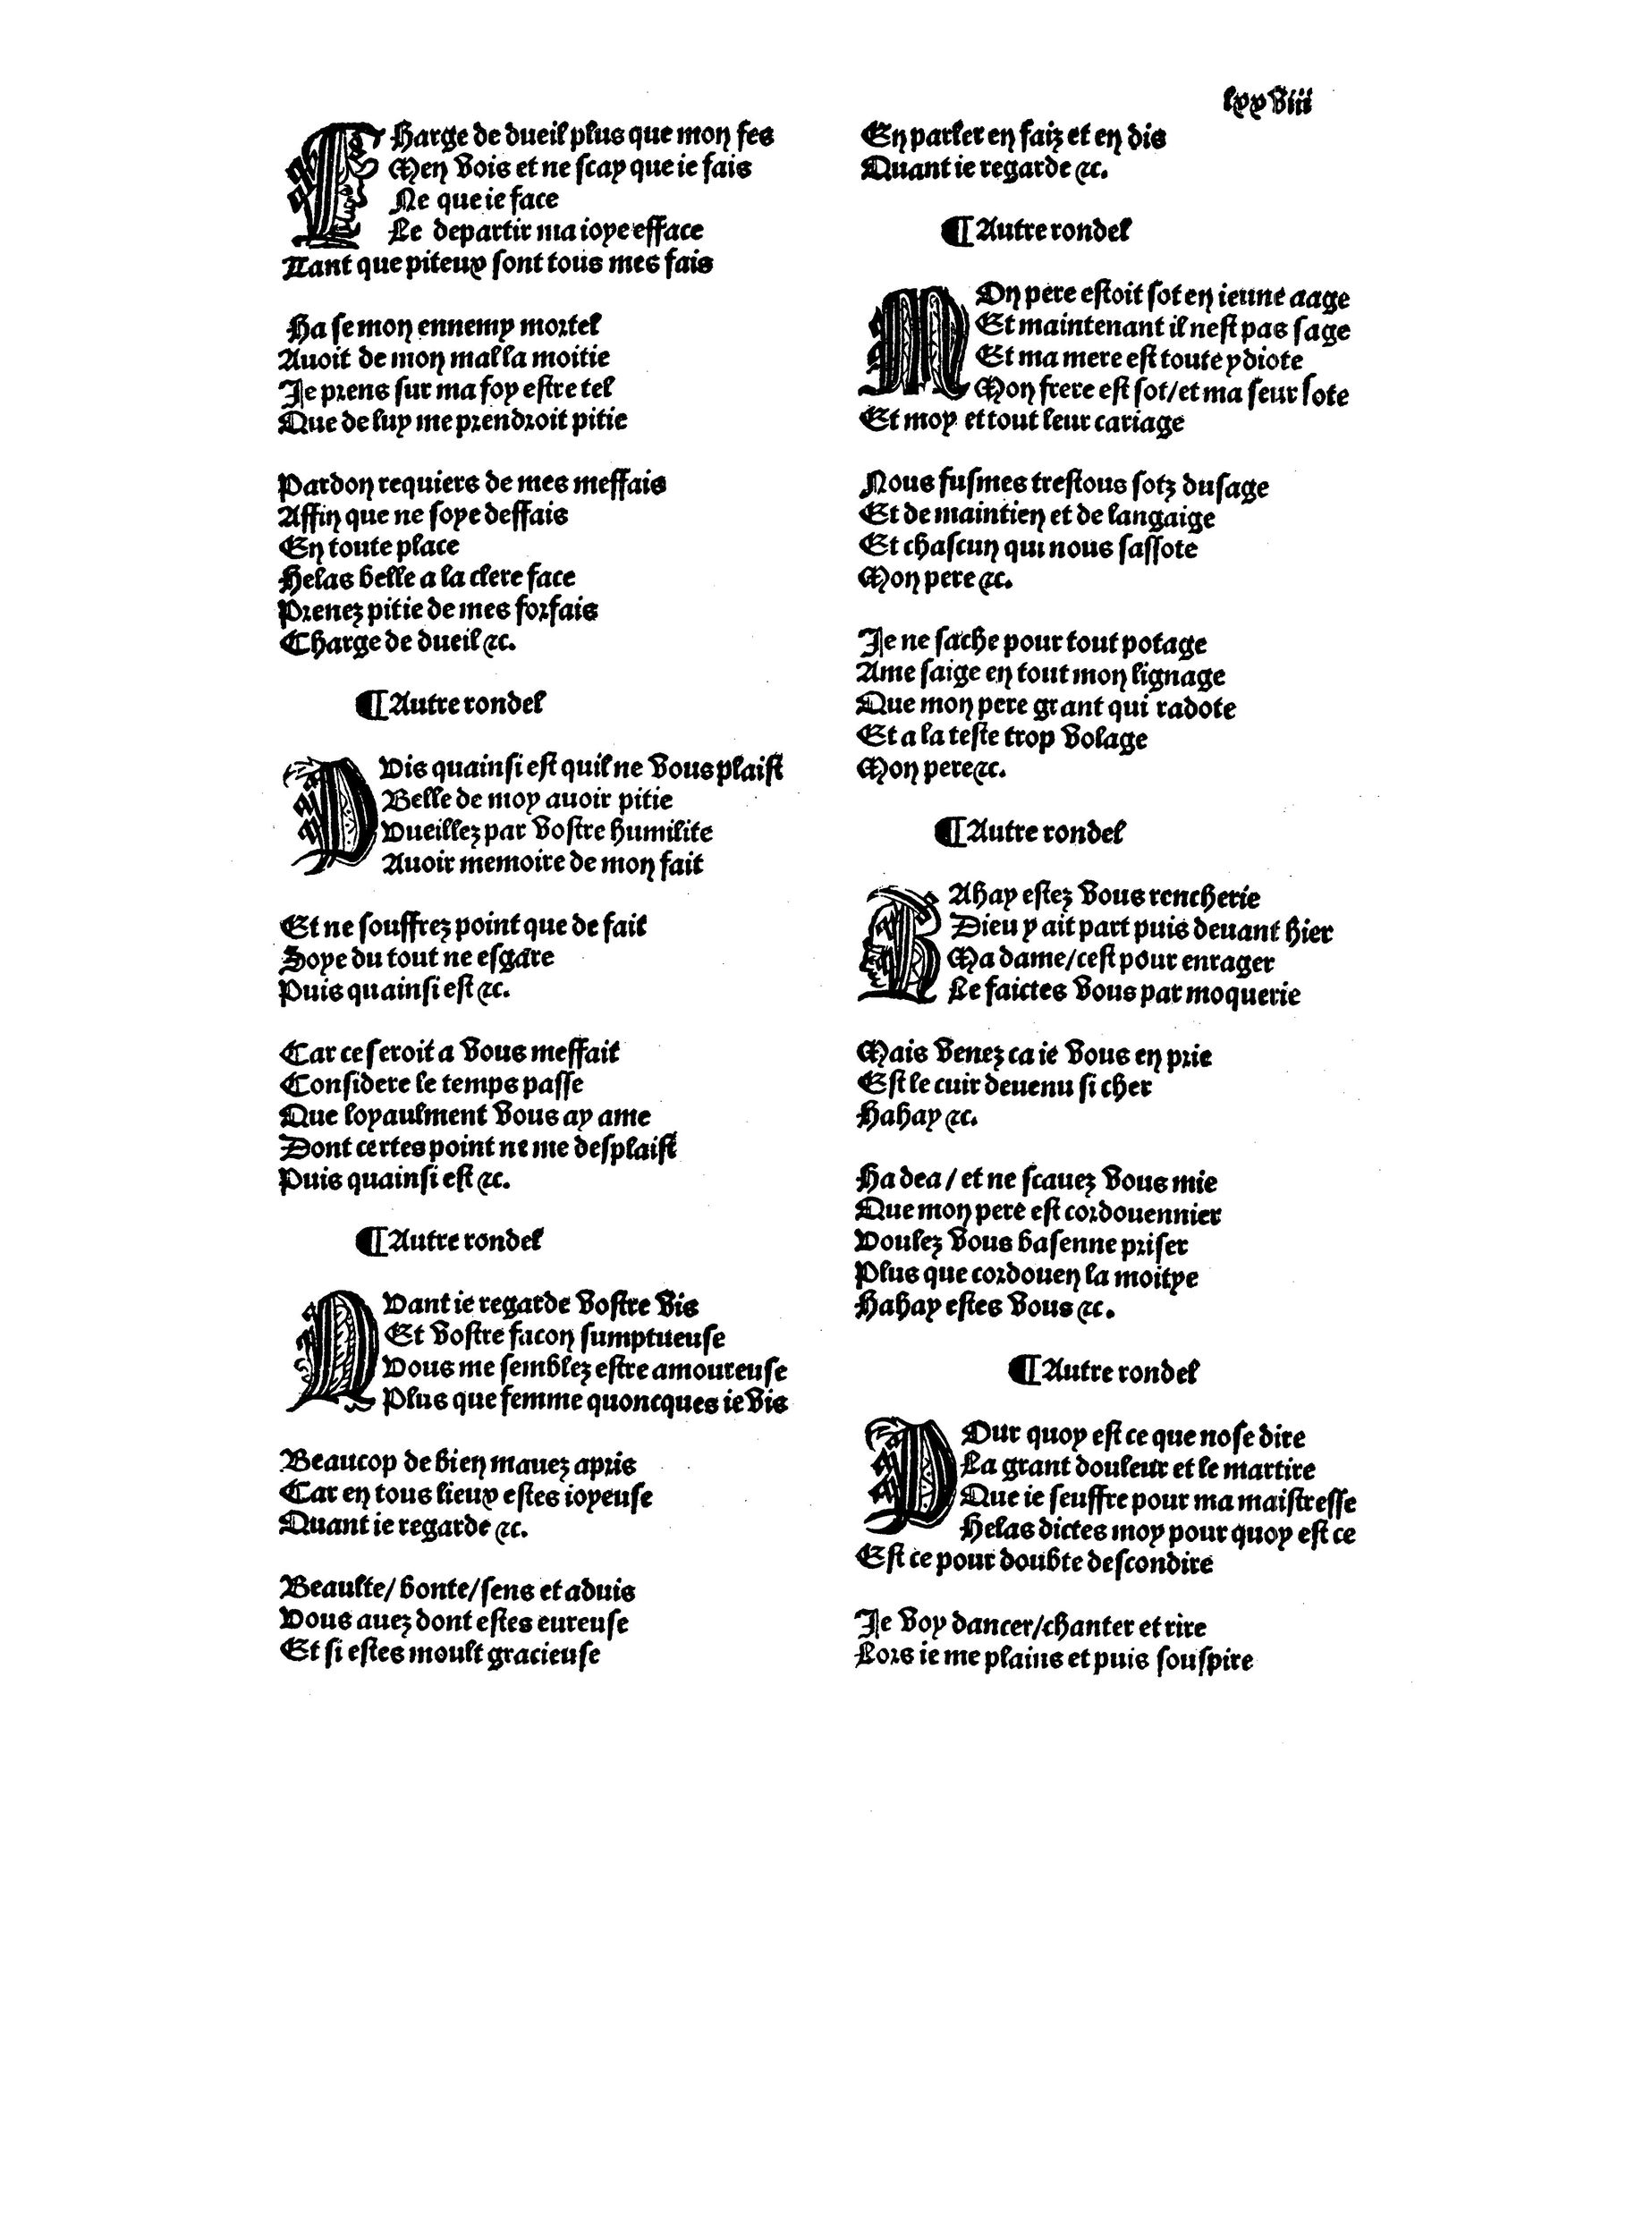 lxxviii
CHarge de dueil plus que mon fes
Men vois et ne scay que ie fais
Ne que ie face
Le departir ma ioye efface
Tant que piteux sont tous mes fais
Ha se mon ennemy mortel
Auoit de mon mal la moitie
Je prens sur ma foy estre tel
Que de luy me prendroit pitie
Pardon requiers de mes meffais
Affin que ne soye deffais
En toute place
Helas belle a la clere face
Prenez pitie de mes forfais
Charge de dueil &c.
¶ Autre rondel
PVis quainsi est quil ne vous plaist
Belle de moy auoir pitie
Vueillez par vostre humilite
Auoir memoire de mon fait
Et ne souffrez point que de fait
Soye du tout ne esgare
Puis quainsi est &c.
Car ce seroit a vous meffait
Considere le temps passe
Que loyaulment vous ay ame
Dont certes point ne me desplaist
Puis quainsi est &c.
¶ Autre rondel
QVant ie regarde vostre vis
Et vostre facon sumptueuse
Vous me semblez estre amoureuse
Plus que femme quoncques ie vis
Beaucop de bien mauez apris
Car en tous lieux estes ioyeuse
Quant ie regarde &c.
Beaulte/ bonte/ sens et aduis
Vous auez dont estes eureuse
Et si estes moult gracieuse
En parler en faiz et en dis
Quant ie regarde &c.
¶ Autre rondel
MOn pere estoit sot en ieune aage
Et maintenant il nest pas sage
Et ma mere est toute ydiote
Mon frere est sot/ et ma seur sote
Et moy et tout leur cariage
Nous fusmes trestous sotz dusage
Et de maintien et de langaige
Et chascun qui nous sassote
Mon pere &c.
Je ne sache pour tout potage
Ame saige en tout mon lignage
Que mon pere grant qui radote
Et a la teste trop volage
Mon pere &c.
¶ Autre rondel
HAhay estez vous rencherie
Dieu y ait part puis deuant hier
Ma dame/ cest pour enrager
Le faictes vous par moquerie
Mais venez ca ie vous en prie
Est le cuir deuenu si cher
Hahay &c.
Ha dea/ et ne scauez vous mie
Que mon pere est cordouennier
Voulez vous basenne priser
Plus que cordouen la moitye
Hahay estes vous &c.
¶ Autre rondel
POur quoy est ce que nose dire
La grant douleur et le martire
Que ie seuffre pour ma maistresse
Helas dictes moy pour quoy est ce
Est ce pour doubte descondire
Je voy dancer/ chanter et rire
Lors ie me plains et puis souspire